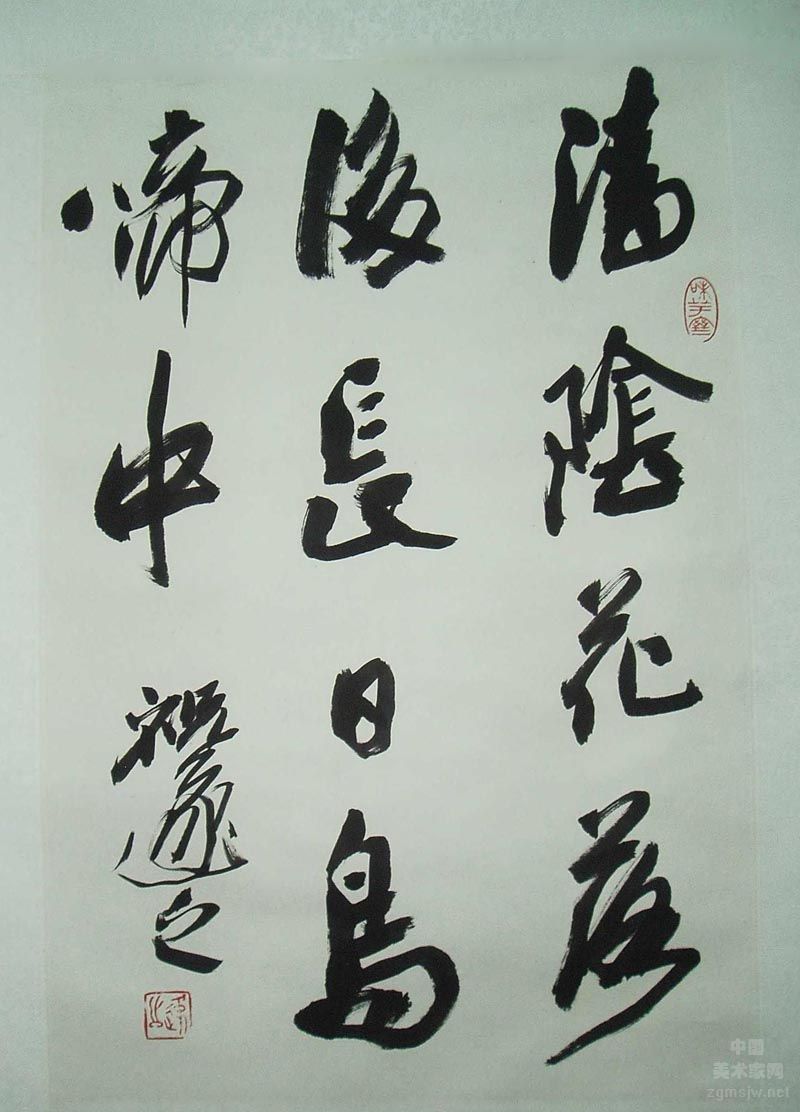 清陰花落
後長日鳥
啼中
中国
美术家网
zgmsjw.net